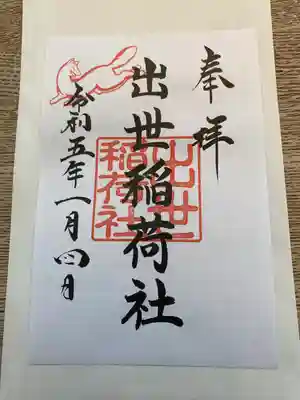 奉拝
出世稲荷社
令和五年一月四日
出世
稲荷社